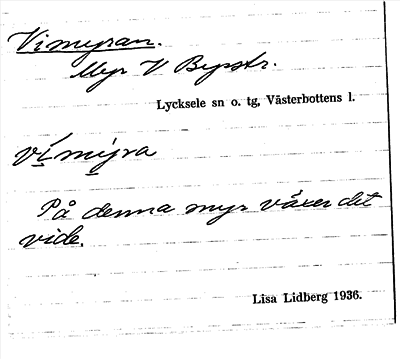 Vimyran.
Myr V Bysstr.
Lycksele sn o. tg, Västerbottens l.
vímýra
På denna myr växer det
vide.
Lisa Lidberg 1936.